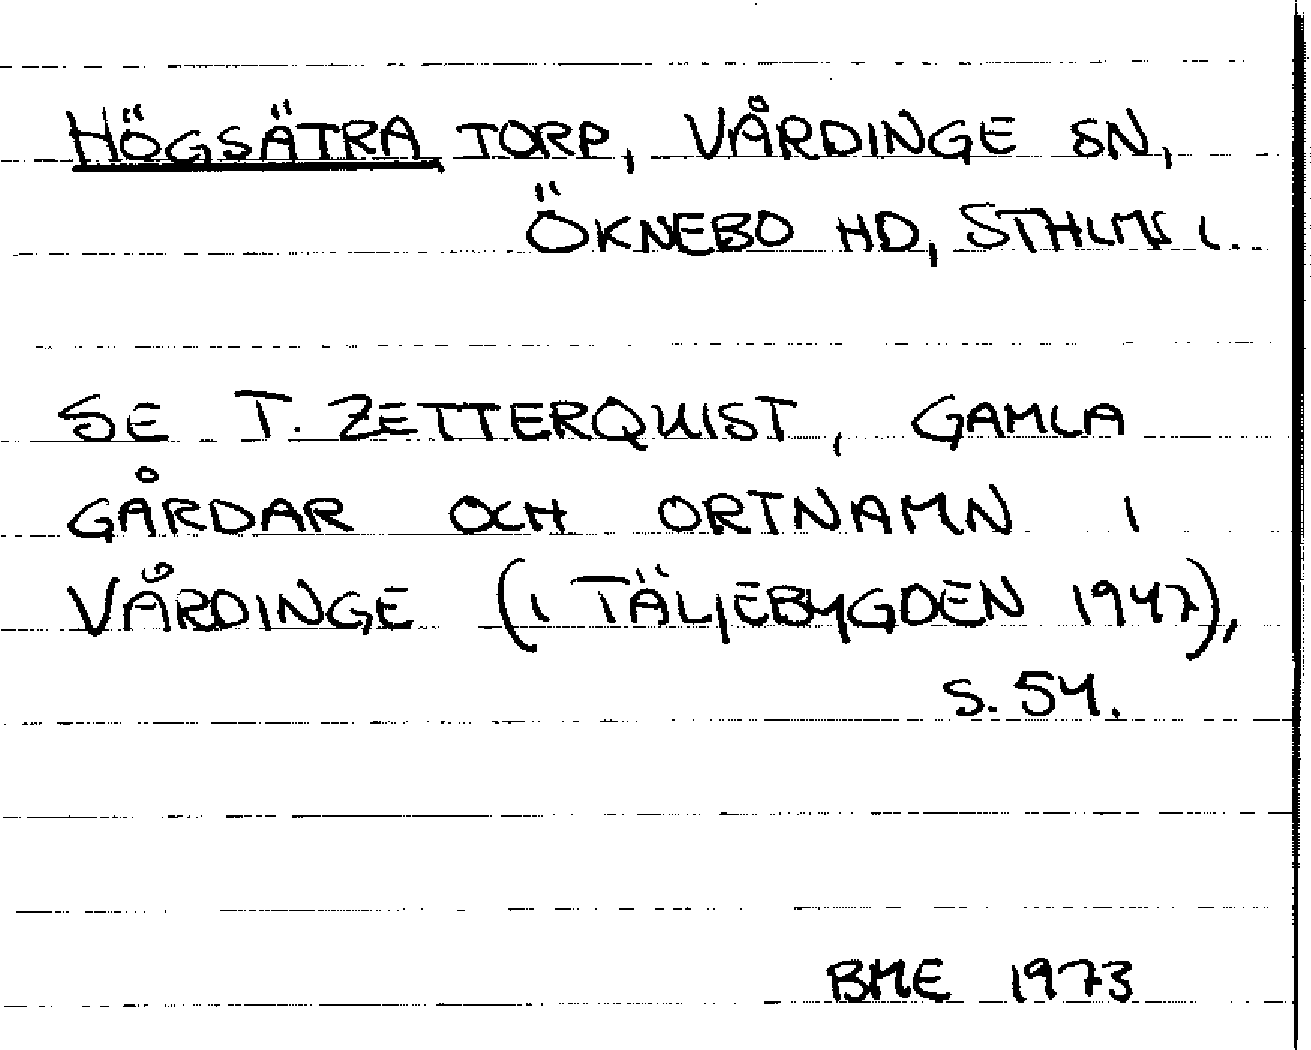 HÖGSÄTRA TORP, VÅRDINGE SN,
ÖKNEBO HD, STHLMS L.
SE T. ZETTERQUIST, GAMLA
GÅRDAR OCH ORTNAMN I
VÅRDINGE (I TÄLJEBYGDEN 1947),
S. 54.
BME 1973